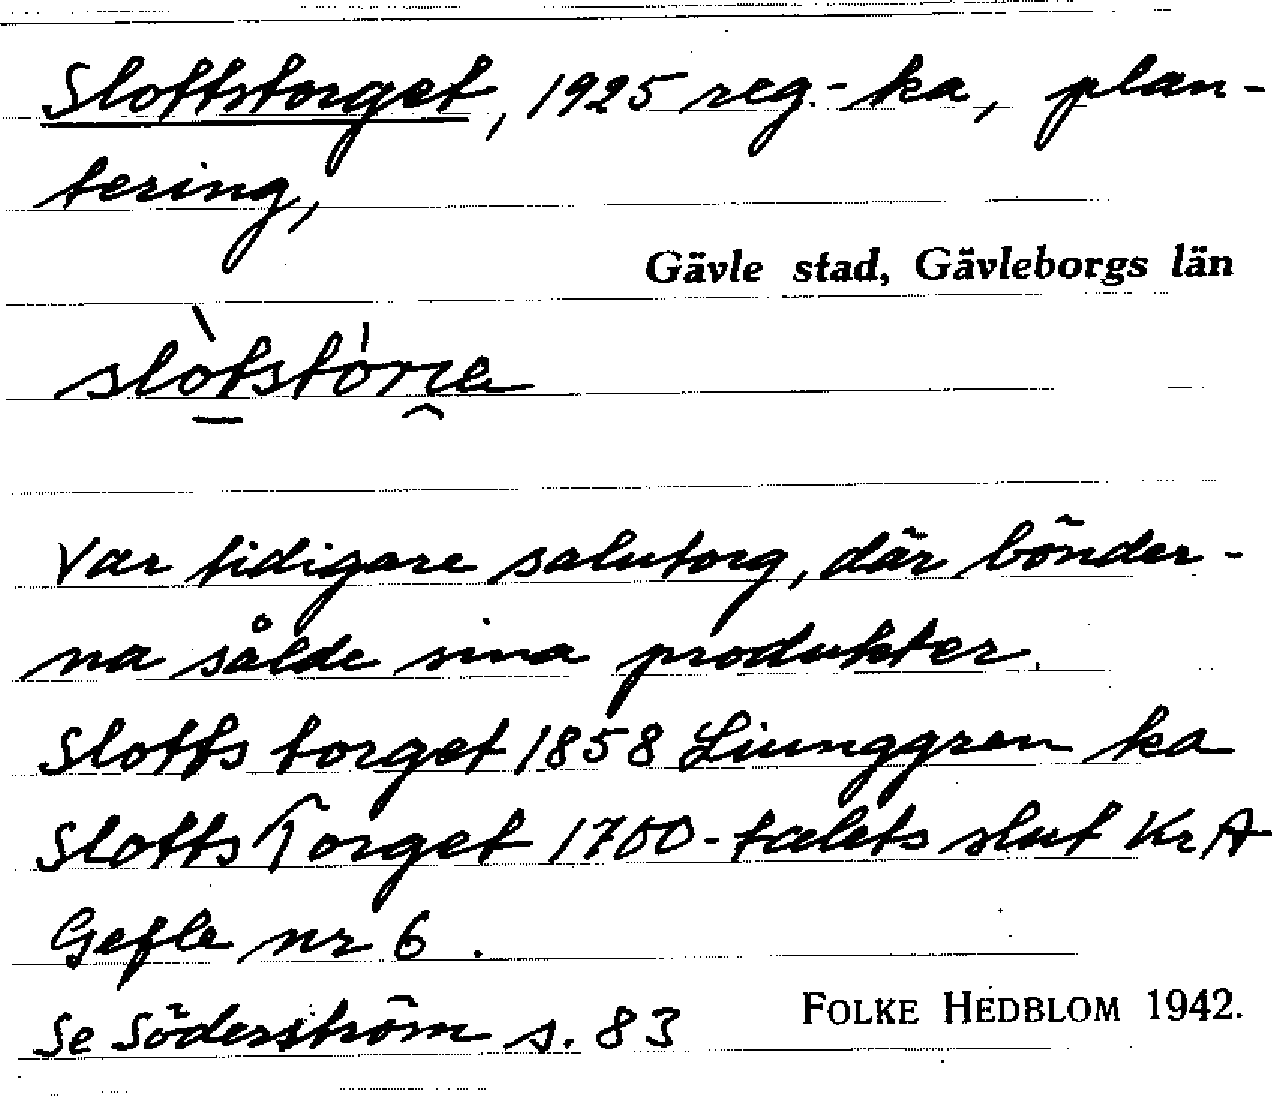 Slottstorget, 1925 reg.-ka, plan-
tering,
Gävle stad, Gävleborgs län
Var tidigare salutorg, där bönder-
na sålde sina produkter.
Slotts torget 1858 Ljunggren ka
Slotts Torget 1700-talets slut Kr A
Gefle nr 6.
Se Söderström s. 83
FOLKE HEDBLOM 1942.